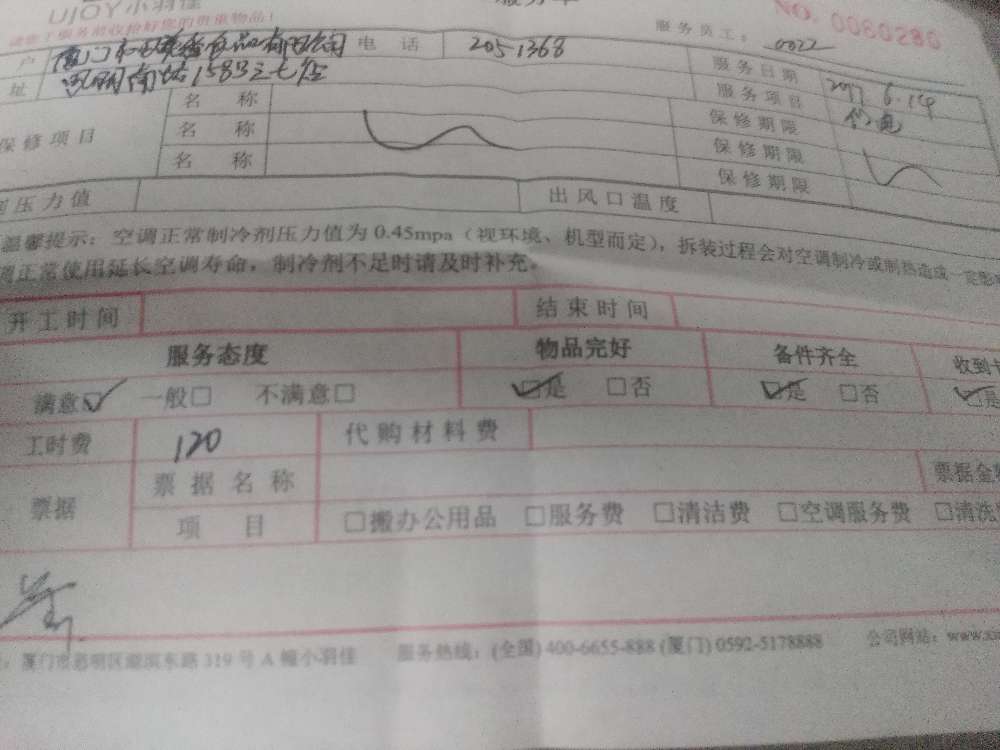 UJOY小羽佳
NO. 0080286
请您于服务前收拾好您的贵重物品！
服务员工： 0022
户 电 话 2051368 服务日期 2017.6.14
址 服务项目
保修项目 名 称 保修期限
名 称 保修期限
名 称 保修期限
压力值 出风口温度
温馨提示：空调正常制冷剂压力值为 0.45mpa（视环境、机型而定），拆装过程会对空调制冷或制热造成一定影
调正常使用延长空调寿命，制冷剂不足时请及时补充。
开工时间 结束时间
服务态度 物品完好 备件齐全 收到
满意☑ 一般□ 不满意□ ☑是 □否 ☑是 □否 ☑是
工时费 120 代购材料费
票据 票据名称 票据金
项 目 □搬办公用品 □服务费 □清洁费 □空调服务费 □清洗
：厦门市思明区湖滨东路 319 号 A 幢小羽佳 服务热线：(全国) 400-6655-888 (厦门) 0592-5178888 公司网站：www.x